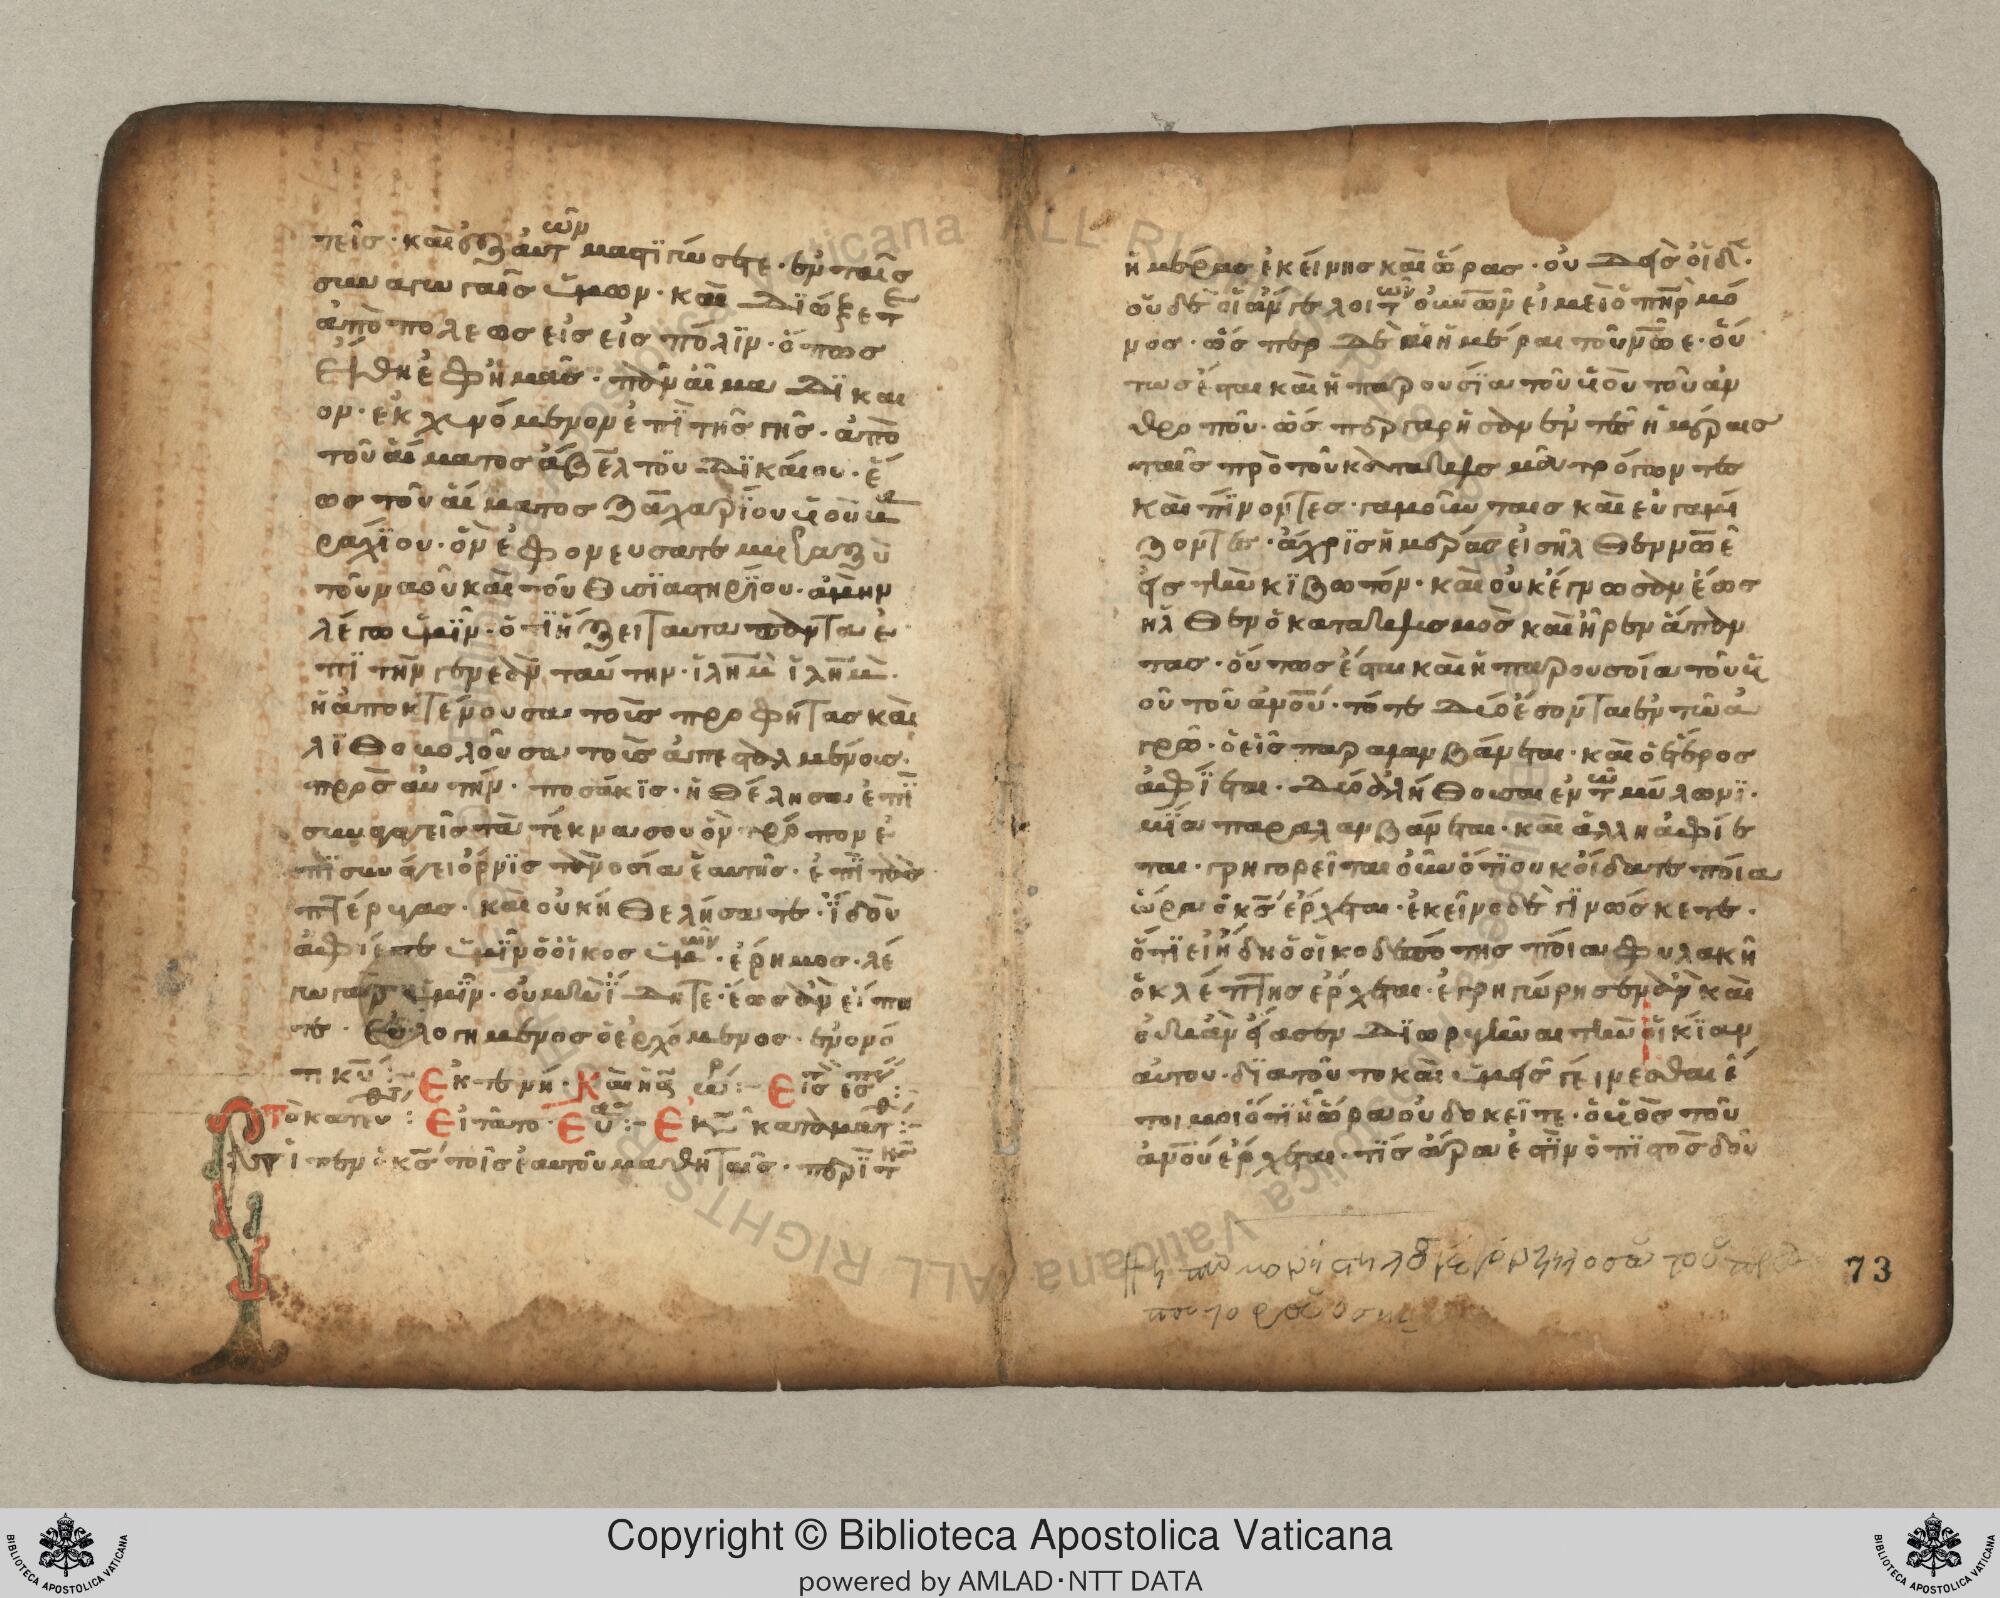 πεῖσ· καὶ ἐξ ἀυτῶν μαστϊγώσεται· ἐν ταῖσ
συναγωγαῖσ ὑμων· καὶ διώξετε
ἀπὸ πολεωσ εἰσ εἰσ πόλϊν· ὅπωσ
ἔλθη ἐφ ἡμᾶσ· πᾶν αἷμα δϊκαι
ον· ἐκχυνόμενον ἐπῒ τῆσ γῆσ· ἀπὸ
τοῦ αἵματοσ ἄβελ τοῦ δϊκάιου· ἕ
ωσ τοῦ αἵματοσ ζαχαρίου ὑιοῦ βα
ραχίου· ὃν ἐφονευσατε μεταξὺ
τοῦ ναοῦ καὶ τοῦ θυσϊαστηρίου· ἀμὴν
λέγω ὑμῖν· ὅτϊ ἥξει ταυτα πάντα ἐ
πῒ τὴν γενεὰν ταύτην· ἰλημ ἰλημ·
ἡ ἀποκτένουσα τοὺσ προφήτασ καὶ
λϊθοβολοῦσα τοὺσ ἀπεσταλμένουσ·
πρὸσ αὐτήν· ποσάκϊσ· ἠθέλησα ἐπϊ
συναξεῖσ τὰ τέκνα σου ὃν τρόπον ἐ
πϊσυνάγει ὄρνϊσ τὰ νοσία ἑαυτῆσ· ἐπῒ τὰσ
πτέρυγασ· καὶ οὐκ ἠθελήσατε· ϊδοὺ
ἀφίετε ὑμῖν ὁ οἶκοσ ὑμῶν· ἐρημοσ· λέ
γω γαρ ὑμῖν· οὐ μὴ ἴδητε· ἕωσ ἂν εἴπη
τε· εὐλογημενοσ ὁ ἐρχόμενοσ· ἐν ονό
τι κυ
τὸ κατα
εἶπεν ὁ κσ τοῖσ ἑαυτοῦ μαθηταῖσ· περὶ τῆσ
ἡμέρασ ἐκείνησ καὶ ὥρασ· οὐδεὶσ οἶδε·
οὐδὲ οἱ ἄγγελοι τῶν οὐνῶν εἰ μεὶ ὁ πηρ μό
νοσ· ὥσπερ δὲ αἱ ἡμέραι τοῦ νῶε· ὅυ
τωσ ἔσται καὶ ἡ παρουσϊα τοῦ ὑιοῦ τοῦ ἀν
θροποῦ· ὥσπερ γαρ ἦσαν ἐν τὲσ ἡμέραισ
ταῖσ πρὸ τοῦ κατακλυσμοῦ τρόγωντεσ
καὶ πϊνοντεσ· γαμοῦνταισ καὶ ἐυγαμί
ζοντεσ· ἄχρϊσ ἡμέρασ εἰσῆλθεν νῶε
εἰσ τὴν κϊβωτόν· καὶ οὐκ ἔγνωσαν ἕωσ
ἦλθεν ὁ κατακλυσμοσ καὶ ἦρεν ἅπαν
τασ· ὅυτωσ ἔσται καὶ ἡ παρουσοία τοῦ ὑι
οῦ τοῦ ἀνου· τότε δύο ἔσονται ἐν τῶ ἀ
γρῶ· ὁ εἷσ παραλαμβάνεται· καὶ ὁ ἕτεροσ
ἀφϊεται· δύο ἀλήθουσαι ἐν τῶ μύλωνϊ·
μϊα παραλαμβάνεται· καὶ ἄλλη ἀφίε
ται· γρηγορεῖται οὖν ὅτϊ οὐκ οἴδατε πόια
ὥρα ὁ κσ ἔρχεται· ἐκεῖνο δὲ γϊνώσκετε·
ὅτϊ εἰ ἤδη ὁ οἰκοδεσπότησ πόια φυλακῆ
ὁ κλέπτησ ἔρχεται· ἐγρηγώρησεν ἂν καὶ
οὐκ ἂν ἔασεν δϊωρυγῆναι τὴν οἰκϊαν
αὐτου· δϊατοῦτο καὶ ὑμεῖσ γείνεσθαι ἕ
τοιμοι ὅτϊ ἧ ὥρα οὐ δοκεῖτε· ὁ ὑιοσ τοῦ
ἀνου ἔρχεται· τίσ ἄρα ἐστὶν ὁ πϊστοσ δοῦ
73
Copyright © Biblioteca Apostolica Vaticana
powered by AMLAD·NTT DATA